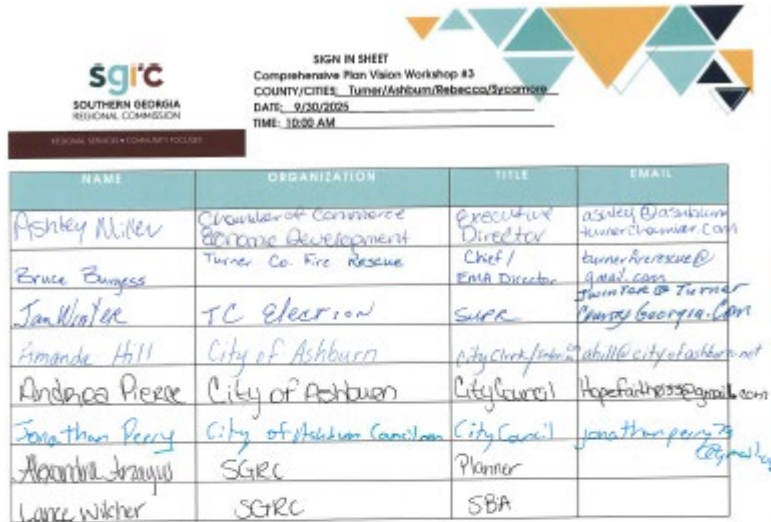 sgrc
SOUTHERN GEORGIA
REGIONAL COMMISSION
REGIONAL SERVICES • COMMUNITY FOCUSED
SIGN IN SHEET
Comprehensive Plan Vision Workshop #3
COUNTY/CITIES: Turner/Ashburn/Rebecca/Sycamore
DATE: 9/30/2025
TIME: 10:00 AM
NAME ORGANIZATION TITLE EMAIL
Ashley Miller Chamber of Commerce Economic Development Executive Director ashley@ashburn turnerchamber.com
Bruce Burgess Turner Co. Fire Rescue Chief/ EMA Director turnerfirerescue@ gmail.com
Jan Winter TC Election SUPR Jwinter@Turner County Georgia.Com
Amanda Hill City of Ashburn City Clerk/ ahill@cityofashburn.net
Andrea Pierce City of Ashburn City Council
Jonathan Perry City of Ashburn Councilman City Council jonathanperry79 @gmail.
Alexandra SGRC Planner
Lance Wilcher SGRC SBA